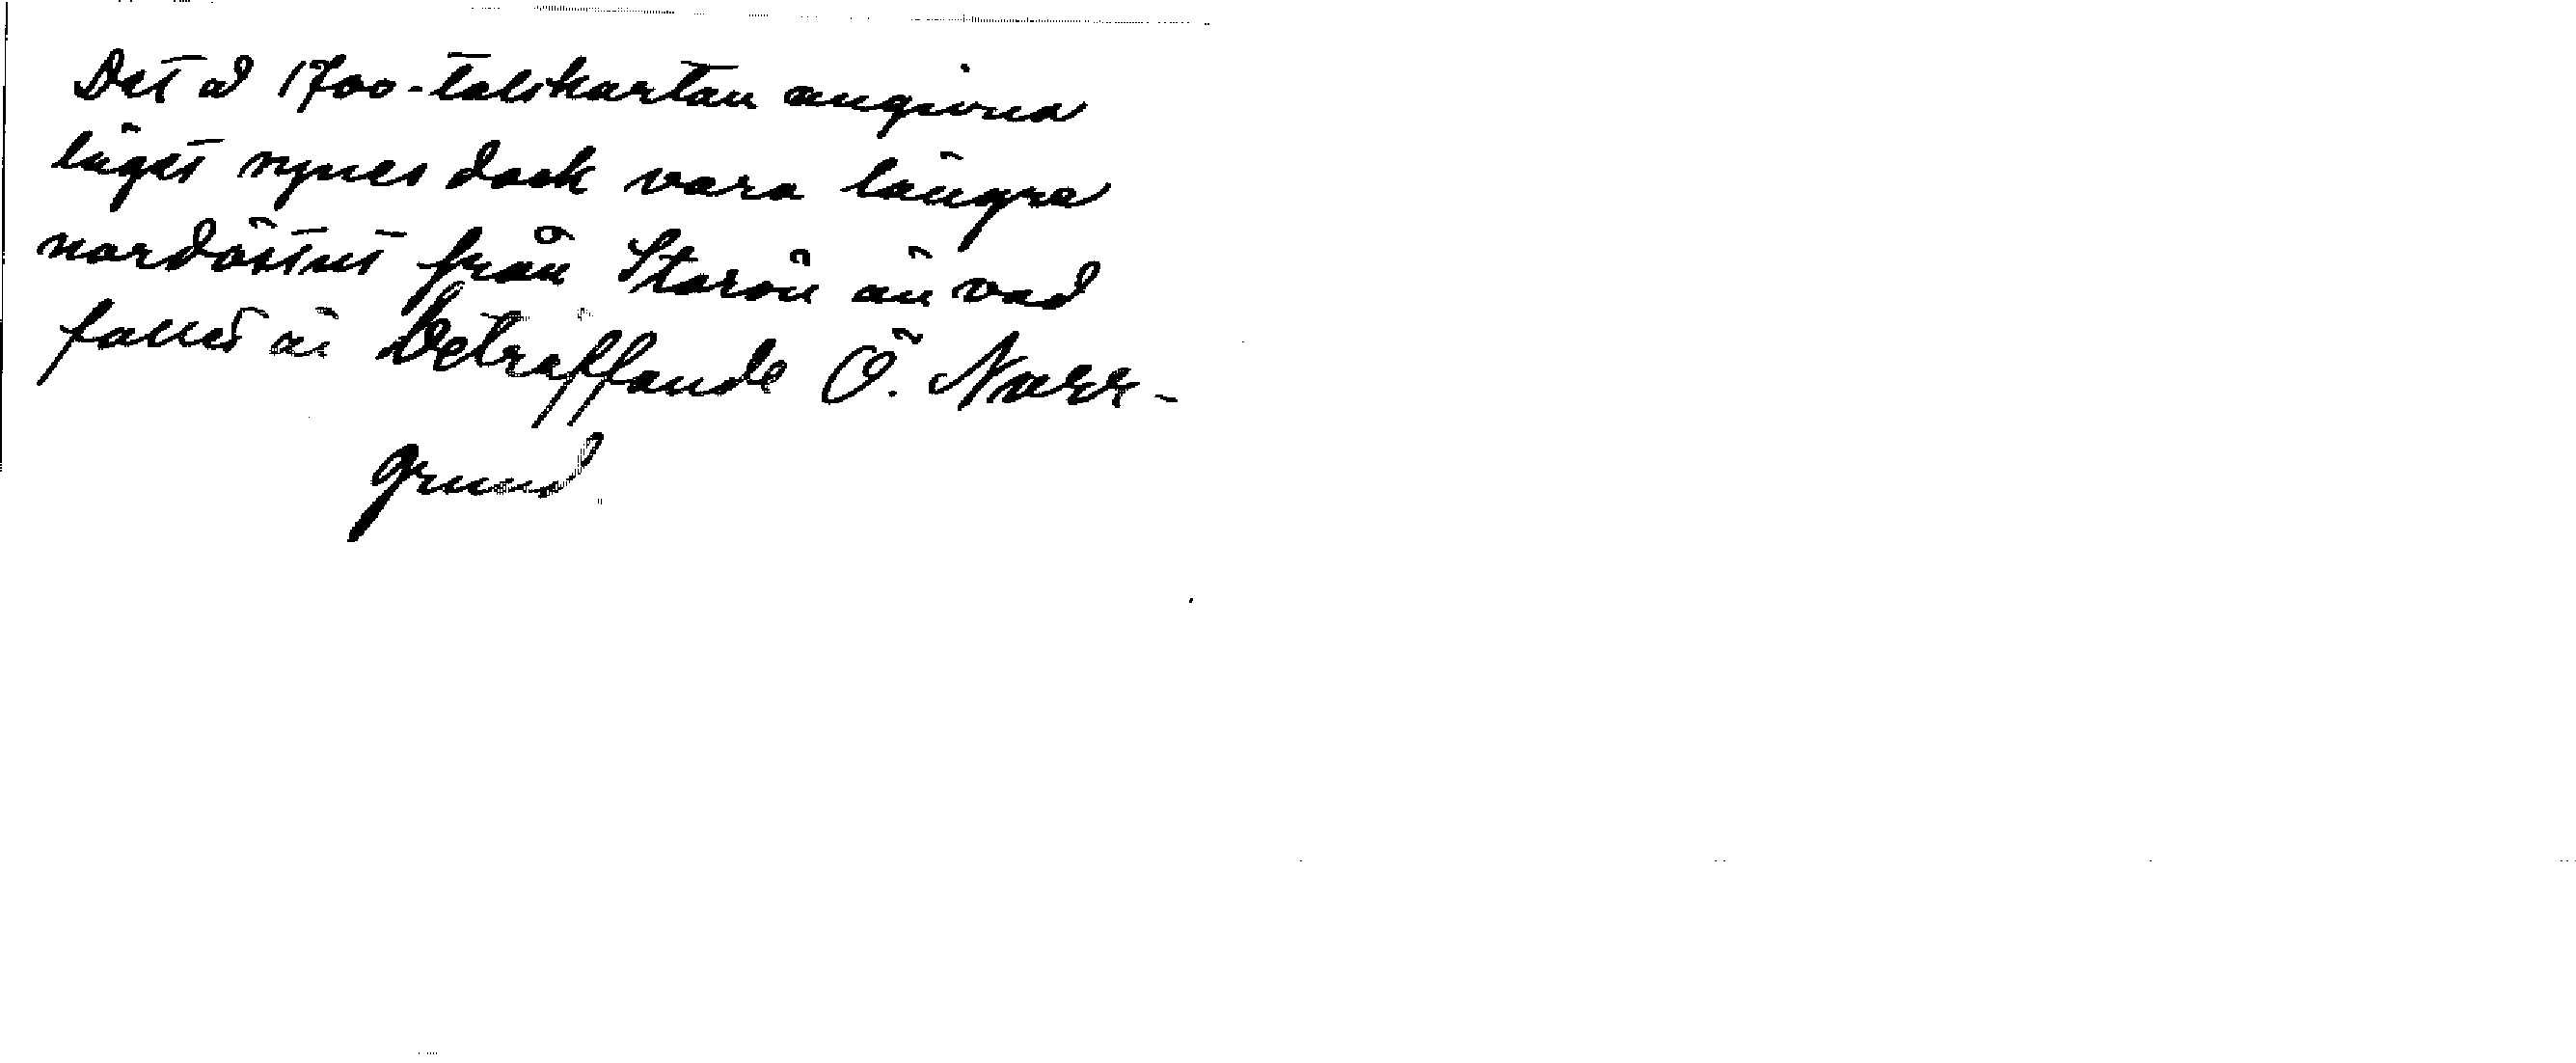 Det å 1700-talskartan angivna
läget synes dock vara längre
nordöstut från Storön än vad
fallet är beträffande Ö. Norr-
grund.